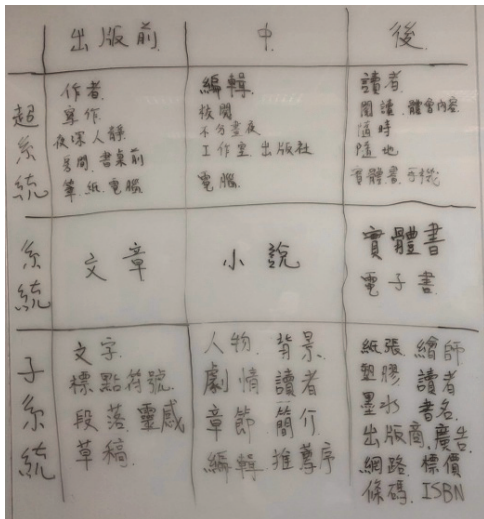 出版前 中 後
超系統
作者
寫作
夜深人靜
房間.書桌前
筆、紙、電腦
編輯
校閱
不分晝夜
工作室 出版社
電腦
讀者
閱讀.體會內容
隨時
隨地
實體書.手機
系統
文章
小說
實體書
電子書
子系統
文字
標點符號
段落.靈感
草稿
人物.背景
劇情 讀者
章節.簡介
編輯.推薦序
紙張 繪師
塑膠 讀者
墨水 書名
出版商.廣告
網路.標價
條碼.ISBN